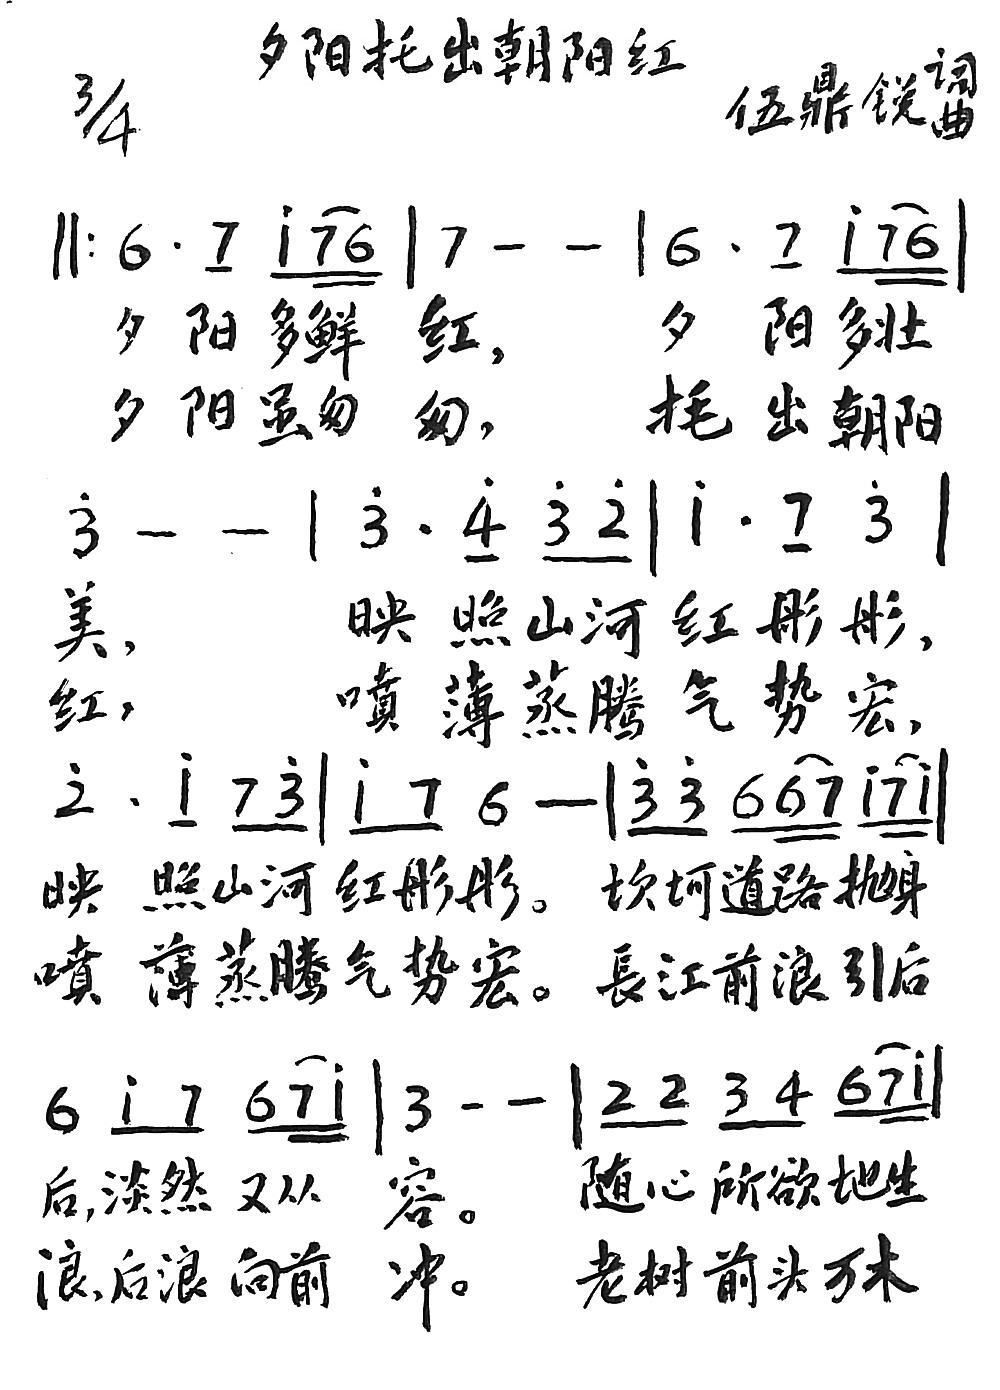 夕阳托出朝阳红
3/4
伍鼎锐词曲
‖: 6 · 7 i 7 6 | 7 - - | 6 · 7 i 7 6 |
夕阳多鲜红， 夕阳多壮
夕阳虽匆匆， 托出朝阳
3 - - | 3 · 4 3 2 | i · 7 3 |
美， 映照山河红彤彤，
红， 噴薄蒸腾气势宏，
2 · i 7 3 | i 7 6 - | 3 3 6 6 7 i 7 i |
映照山河红彤彤。 坎坷道路抛身
噴薄蒸腾气势宏。 長江前浪引后
6 i 7 6 7 i | 3 - - | 2 2 3 4 6 7 i |
后，淡然又从容。 随心所欲地生
浪、后浪向前冲。 老树前头万木